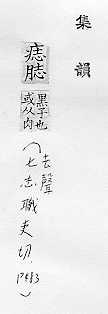 集韻
痣誌
黑子也
或从肉
(去聲
七志職吏切,
P483)